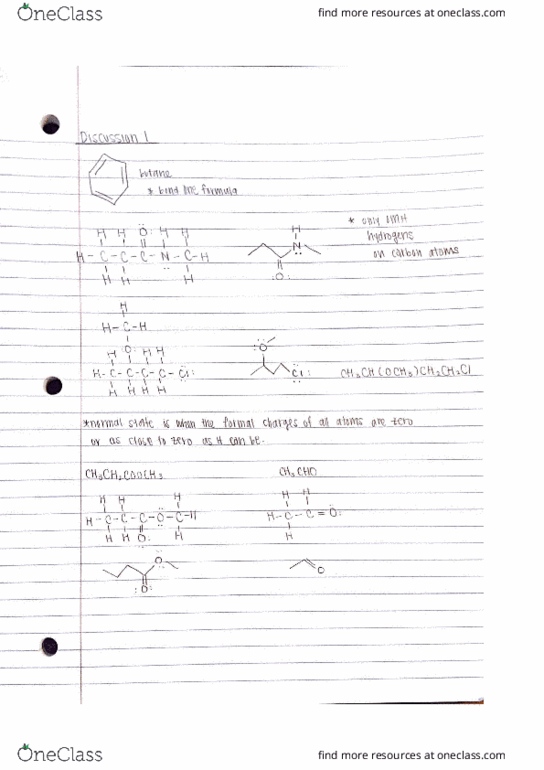 OneClass
find more resources at oneclass.com
Discussion 1
butane
* bond line formula
H H Ö H H
H - C - C - C - N - C - H
H H H
H
N
:O:
* only omit
hydrogens
on carbon atoms
H
H - C - H
H :O: H H
H - C - C - C - C - Cl:
H H H H
:O
Cl:
CH₃CH(OCH₃)CH₂CH₂Cl
*normal state is when the formal charges of all atoms are zero
or as close to zero as it can be.
CH₃CH₂COOCH₃
CH₃CHO
H H H
H - C - C - C - O - C - H
H H O: H
H H
H - C - C = O:
H
O
:O:
O
OneClass
find more resources at oneclass.com